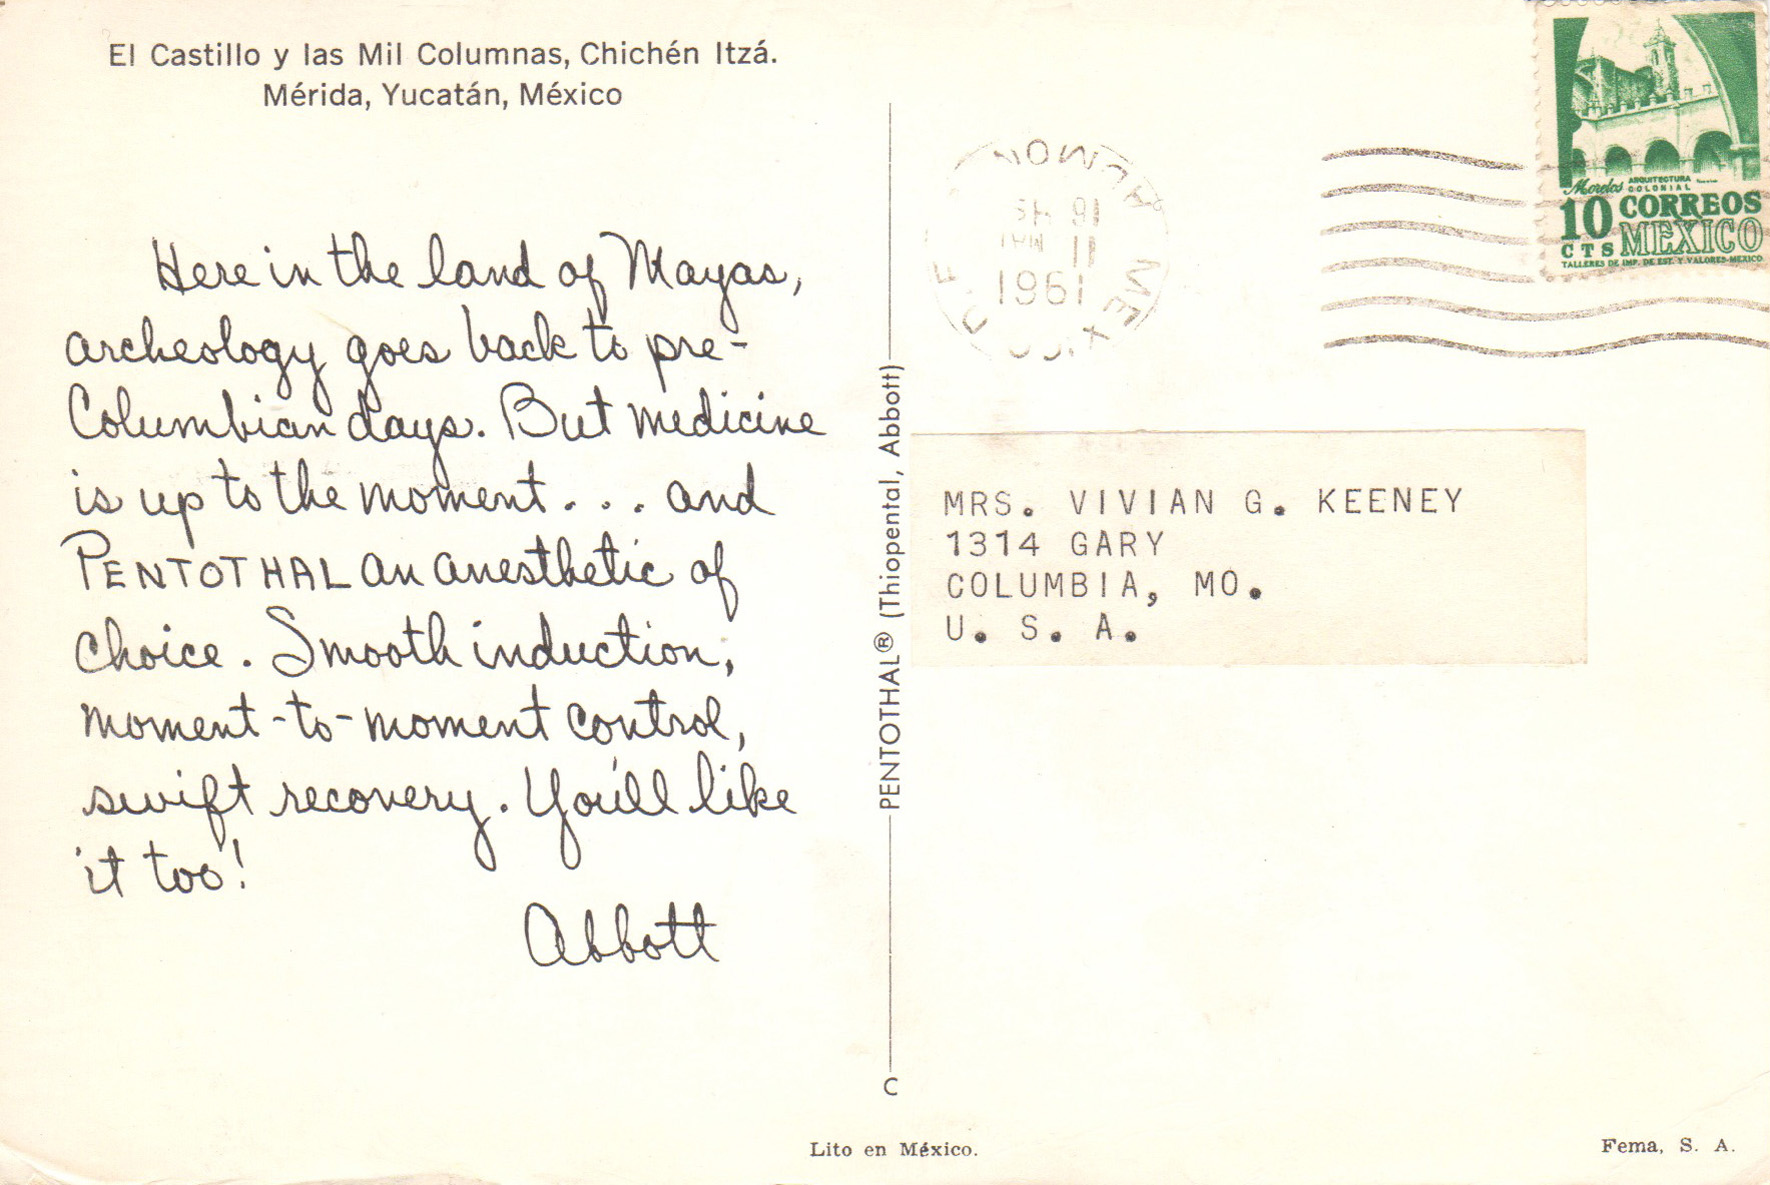 El Castillo y las Mil Columnas, Chichén Itzá.
Mérida, Yucatán, México
Here in the land of Mayas,
archeology goes back to pre-
Columbian days. But medicine
is up to the moment . . . and
PENTOTHAL an anesthetic of
choice. Smooth induction,
moment-to-moment control,
swift recovery. You'll like
it too!
Abbott
PENTOTHAL® (Thiopental, Abbott)
C
1961
Morelos ARQUITECTURA
COLONIAL
10 CORREOS
CTS MEXICO
TALLERES DE IMP. DE EST. Y VALORES-MEXICO
MRS. VIVIAN G. KEENEY
1314 GARY
COLUMBIA, MO.
U. S. A.
Lito en México.
Fema, S. A.